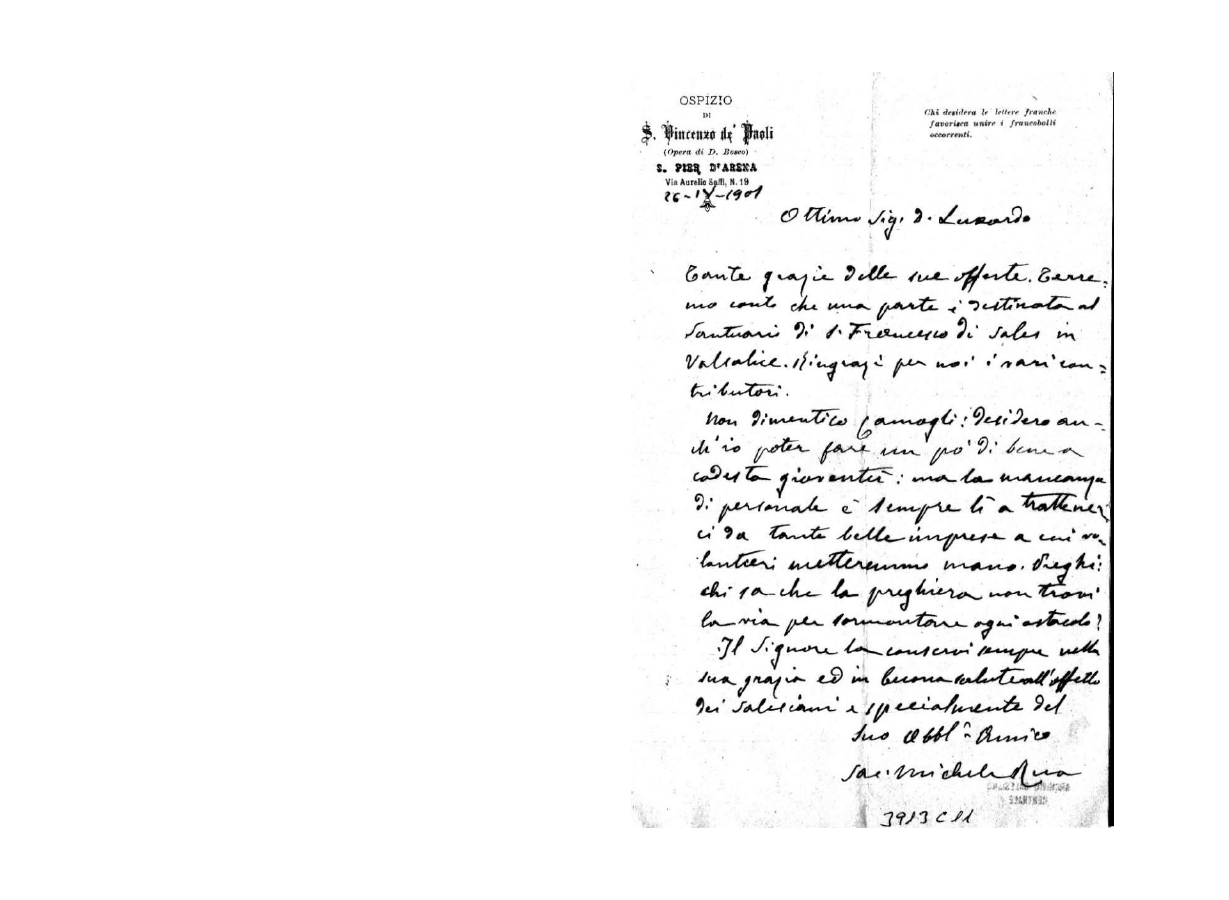 OSPIZIO
DI
S. Vincenzo de' Paoli
(Opera di D. Bosco)
S. PIER D'ARENA
Via Aurelio Saffi, N. 19
Chi desidera le lettere franche
favorisca unire i francobolli
occorrenti.
26-IV-1901
Ottimo Sig. D. Luxardo
Tante grazie delle sue offerte. Terre=
mo conto che una parte è destinata al
Santuario di S. Francesco di Sales in
Valsalice. Ringrazi per noi i vari con=
tributori.
Non dimentico Camogli: desidero an-
ch'io poter fare un po' di bene a
codesta gioventù: ma la mancanza
di personale è sempre lì a trattener
ci da tante belle imprese a cui vo
lontieri metteremmo mano. Preghi:
chi sa che la preghiera non trovi
la via per sormontare ogni ostacolo?
Il Signore la conservi sempre nella
sua grazia ed in buona salute all'affetto
dei Salesiani e specialmente del
Suo Obbl. Amico
Sac. Michele Rua
CENTRALE